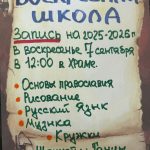 ВОСКРЕСНАЯ
ШКОЛА
Запись на 2025-2026 г
в воскресенье 7 сентября
в 12:00 в Храме.
• Основы православия
• Рисование
• Русский Язык
• Музыка
• Кружки